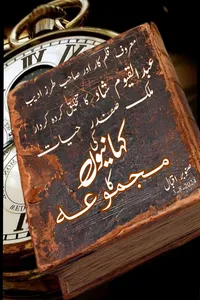 معروف قلم کار اور صاحب طرز ادیب
عبدالقیوم شاد کا تخلیق کردہ کردار
ملک صفدر حیات
کی
کہانیوں
کا
مجموعہ
صوبر اقبال